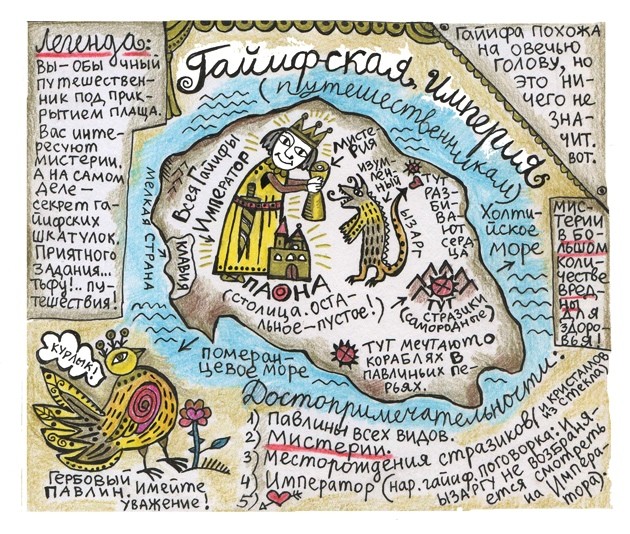 Легенда:
Вы-обычный
путешествен-
ник под прик-
рытием плаща.
Вас инте-
ресуют
мистерии.
А на самом
деле-
секрет га-
йифских
шкатулок.
Приятного
задания...
Тьфу!.. пу-
тешествия!
Гайифская империя
(путешественникам)
Гайифа похожа
на овечью
голову, но
это ни-
чего не
зна-
чит.
вот.
Мелкая страна
Клавия
Император
Всея Гайифы
Мисте-
рия
Изум-
ленный
ызарг
Тут
раз-
би-
ва-
ют
серд-
ца
Холтий-
ское
море
Мис-
терии
в бо-
льшом
коли-
честве
вред-
ны
для
здоро-
вья!
Паона
(столица. Оста-
льное-пустое!)
Тут
стразики
(самородные)
Тут мечтают о
кораблях в
павлиньих пе-
рьях.
Померан-
цевое море
Курлык!
Гербовый
павлин. Имейте
уважение!
Достопримечательности:
1) Павлины всех видов.
2) Мистерии.
3) Месторождения стразиков (и кристаллов из стекла)
4) Император (нар. гайиф. поговорка: и
ызаргу не возбраня-
ется смотреть
на Импера-
тора)
5)